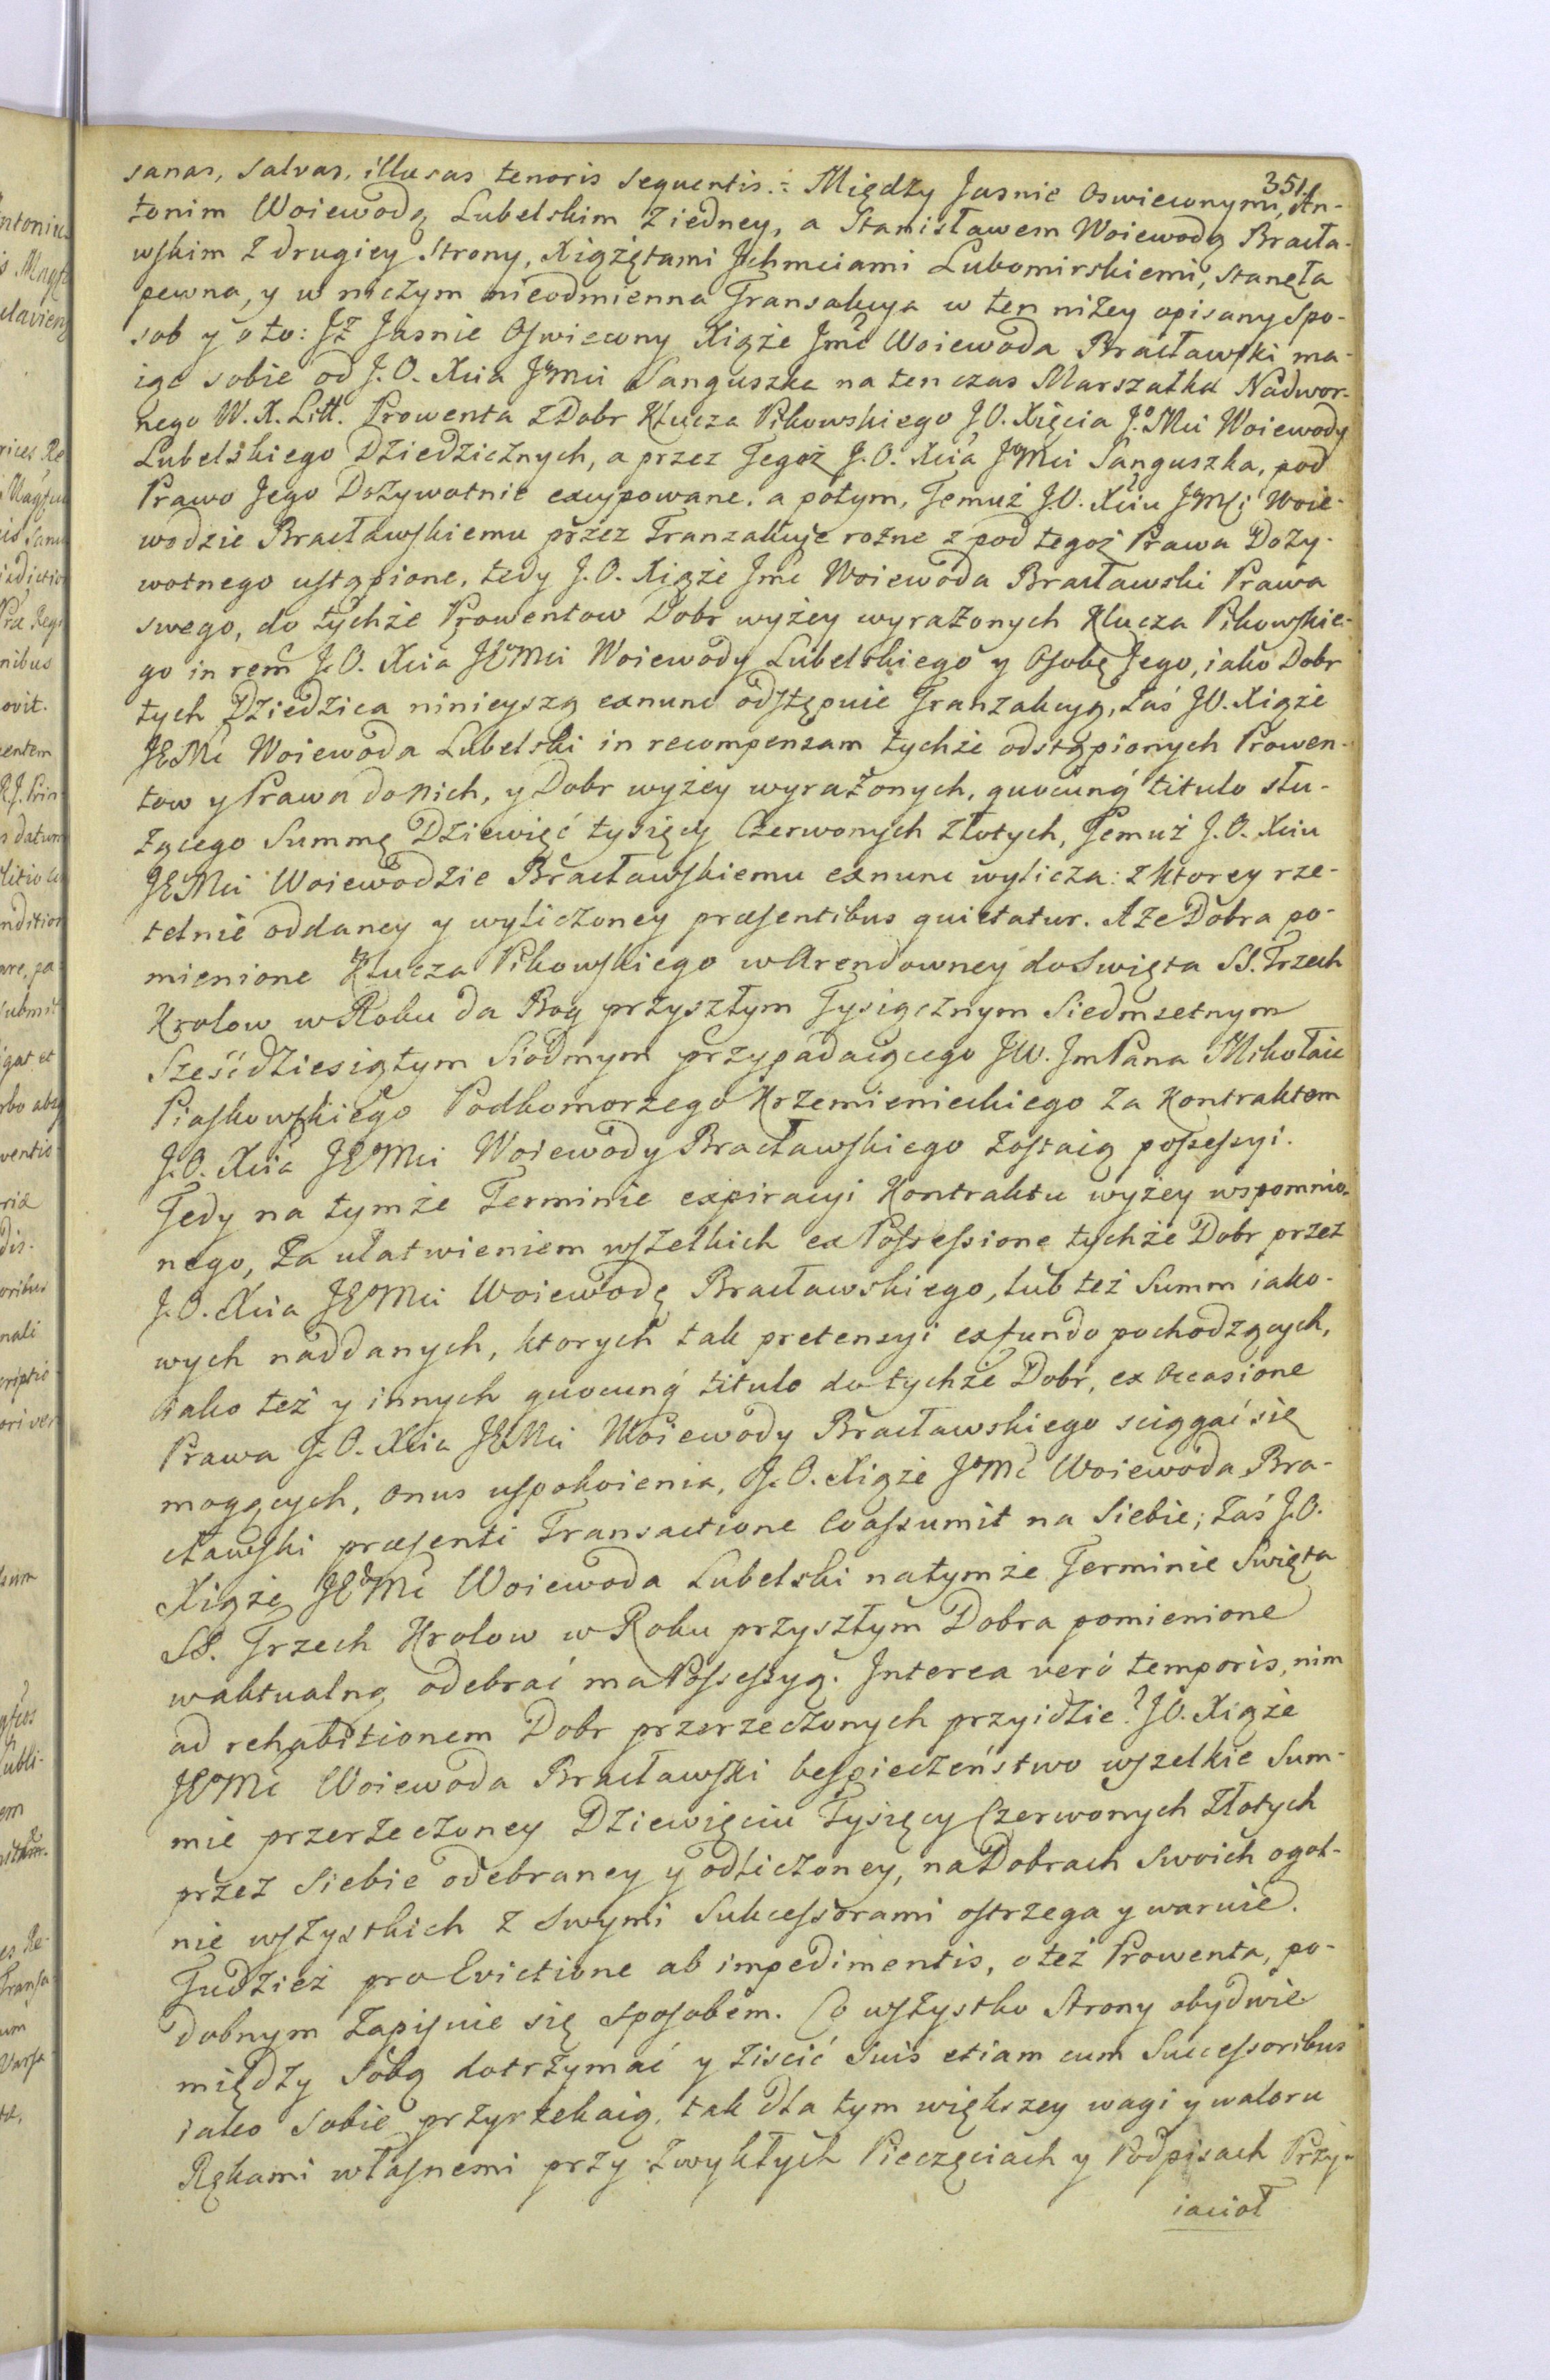 351.
sanas, salvas, illæsas tenoris sequentis.: Między Jasnie Oswieconymi, An-
tonim Woiewodą Lubelskim z iedney, a Stanisławem Woiewodą Bracła-
wskim z drugiey Strony, Xiążętami Jchmciami Lubomirskiemi, stanęła
pewna, y w niczym nieodmienna Transakcya w ten niżey opisany spo-
sob y o to: Jż Jasnie Oswiecony Xiąże Jmć Woiewoda Bracławski ma-
iąc sobie od J.O. Xcia Jmci Sanguszka na ten czas Marszałka Nadwor-
nego W. X. Litt. Prowenta z Dobr Klucza Pikowskiego J.O. Xięcia J.Mci Woiewody
Lubelskiego Dziedzicznych, a przez Tegoż J.O. Xcia JMci Sanguszka, pod
Prawo Jego Dożywotnie excypowane, a potym, Temuż J.O. Xciu JMci Woie-
wodzie Bracławskiemu przez Tranzakcye rożne z pod tegoż Prawa Doży-
wotnego ustąpione, tedy J.O. Xiąże Jmć Woiewoda Bracławski Prawa
swego, do tychże Prowentow Dobr wyżey wyrażonych Klucza Pikowskie-
go in rem J.O. Xcia JEMci Woiewody Lubelskiego y Osobę Jego, iako Dobr
tych Dziedzica ninieyszą exnunc odstępuie Tranzakcyą, zaś J.O. Xiąże
JEMć Woiewoda Lubelski in recompensam tychże odstąpionych Prowen-
tow y Prawa do nich, y Dobr wyżey wyrażonych, quocunq titulo słu-
żącego Summę Dziewięć tysięcy Czerwonych Złotych, Temuż J.O. Xciu
JEMci Woiewodzie Bracławskiemu exnunc wylicza: z ktorey rze-
telnie oddaney y wyliczoney præsentibus quietatur. A że Dobra po-
mienione Klucza Pikowskiego w Arendowney do Swięta SS. Trzech
Krolow w Roku da Bog przyszłym Tysiącznym Siedmsetnym
Sześćdziesiątym Siodmym przypadaiącego JW. Jm Pana Mikołaia
Piaskowskiego Podkomorzego Krzemienieckiego za Kontraktem
J.O. Xcia JEMci Woiewody Bracławskiego zostaią possessyi.
Tedy na tymże Terminie expiracyi Kontraktu wyżey wspomnio-
nego, za ułatwieniem wszelkich ex Possessione tychże Dobr przez
J.O. Xcia JEMci Woiewodę Bracławskiego, lub też Summ iako-
wych naddanych, ktorych tak pretensyi ex fundo pochodzących,
iako też y innych quocunq titulo do tychże Dobr, ex occasione
Prawa J.O. Xcia JEMci Woiewody Bracławskiego sciągać się
mogących, onus uspokoienia, J.O. Xiąże JMć Woiewoda Bra-
cławski præsenti Transactione Coassumit na Siebie; zaś J.O.
Xiąże JEMć Woiewoda Lubelski na tymże Terminie Swięta
SS. Trzech Krolow w Roku przyszłym Dobra pomienione
w aktualną odebrać ma Possessyą. Interea verò temporis, nim
ad rehabitionem Dobr przerzeczonych przyidzie? J.O. Xiąże
JEMć Woiewoda Bracławski bespieczeństwo wszelkie Sum-
mie przerzeczoney Dziewięciu Tysięcy Czerwonych Złotych
przez siebie odebraney y odliczoney, na Dobrach swoich ogol-
nie wszystkich z swymi Sukcessorami ostrzega y waruie.
Tudzież pro Evictione ab impedimentis, o też Prowenta, po-
dobnym zapisuie się sposobem. Co wszystko Strony obydwie
między sobą dotrzymać y ziscić suis etiam cum Successoribus
iako sobie przyrzekaią, tak dla tym większey wagi y waloru
Rękami własnemi przy zwykłych Pieczęciach y Podpisach Przy-
iacioł